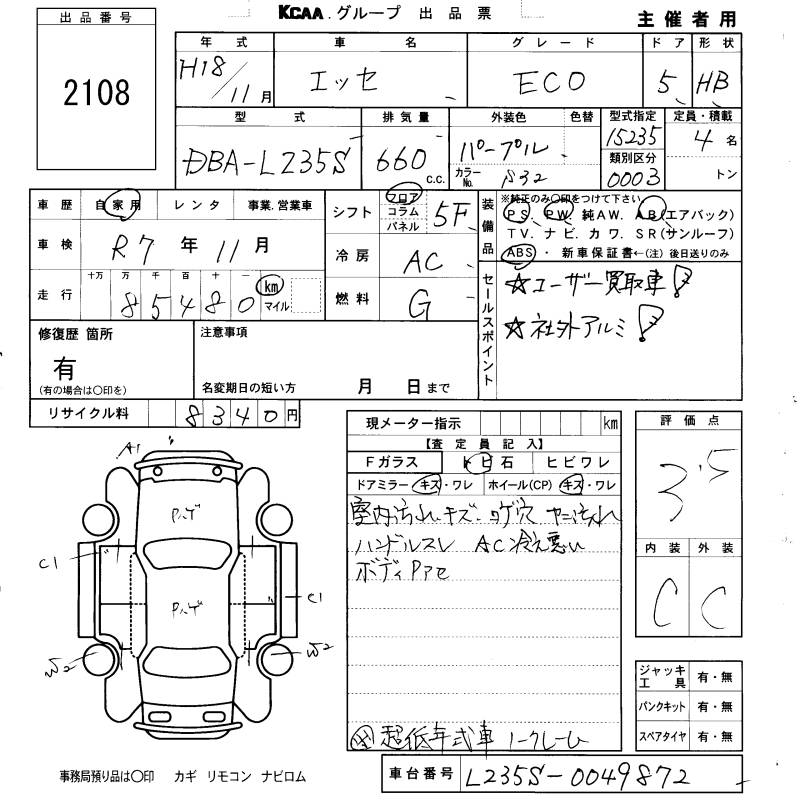 KCAA.グループ 出品票
主催者用
出品番号
2108
年式 車名 グレード ドア 形状
H18/11月 エッセ ECO 5 HB
型式 排気量 外装色 色替 型式指定 定員・積載
DBA-L235S 660 c.c. パープル 15235 4名
カラーNo. 類別区分 トン
0003
車歴 自家用 レンタ 事業.営業車
シフト フロア コラム パネル 5F
装備品 ※純正のみ〇印をつけて下さい
PS. PW. 純AW. AB(エアバック)
TV. ナビ. カワ. SR(サンルーフ)
ABS ・ 新車保証書←(注) 後日送りのみ
車検 R7年11月
冷房 AC
走行 十万 万 千 百 十 一
85480 km マイル
燃料 G
セールスポイント
☆ユーザー買取車!
☆社外アルミ!
修復歴 箇所
有
(有の場合は〇印を)
注意事項
名変期日の短い方 月 日まで
リサイクル料 8340円
現メーター指示 km
【査定員記入】
Fガラス トビ石 ヒビワレ
ドアミラー キズ・ワレ ホイール(CP) キズ・ワレ
室内汚れ.キズ.コゲ穴 ヤニ汚れ
ハンドルスレ AC冷え悪い
ボディPアセ
超低年式車 ノークレーム
評価点
3.5
内装 外装
C C
ジャッキ工具 有・無
パンクキット 有・無
スペアタイヤ 有・無
A1
Pハゲ
C1
Pハゲ
C1
W2
W2
事務局預り品は〇印 カギ リモコン ナビロム
車台番号 L235S-0049872